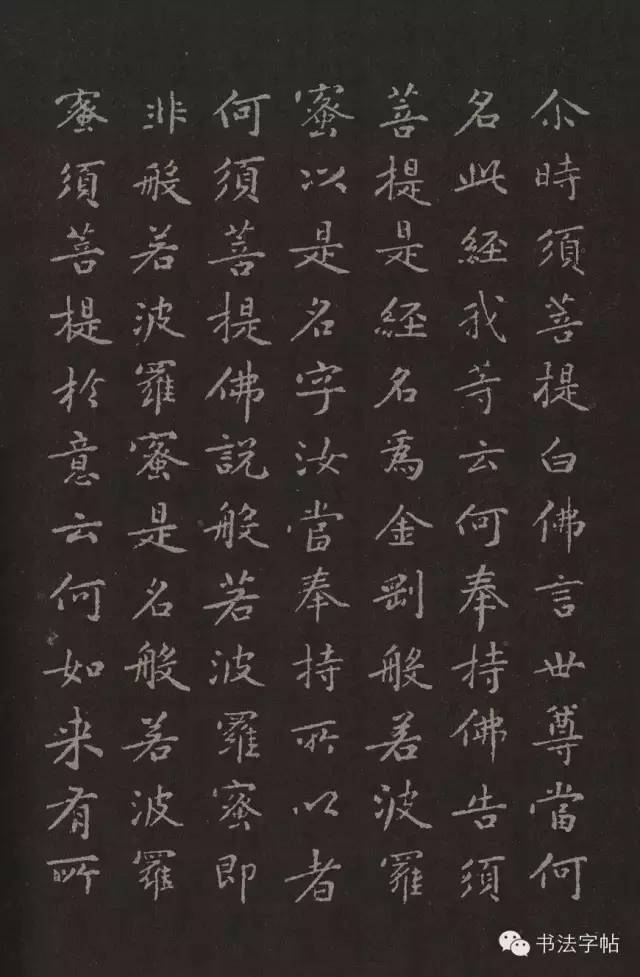 尒時須菩提白佛言世尊當何
名此經我等云何奉持佛告須
菩提是經名為金剛般若波羅
蜜以是名字汝當奉持所以者
何須菩提佛說般若波羅蜜即
非般若波羅蜜是名般若波羅
蜜須菩提於意云何如来有所
书法字帖